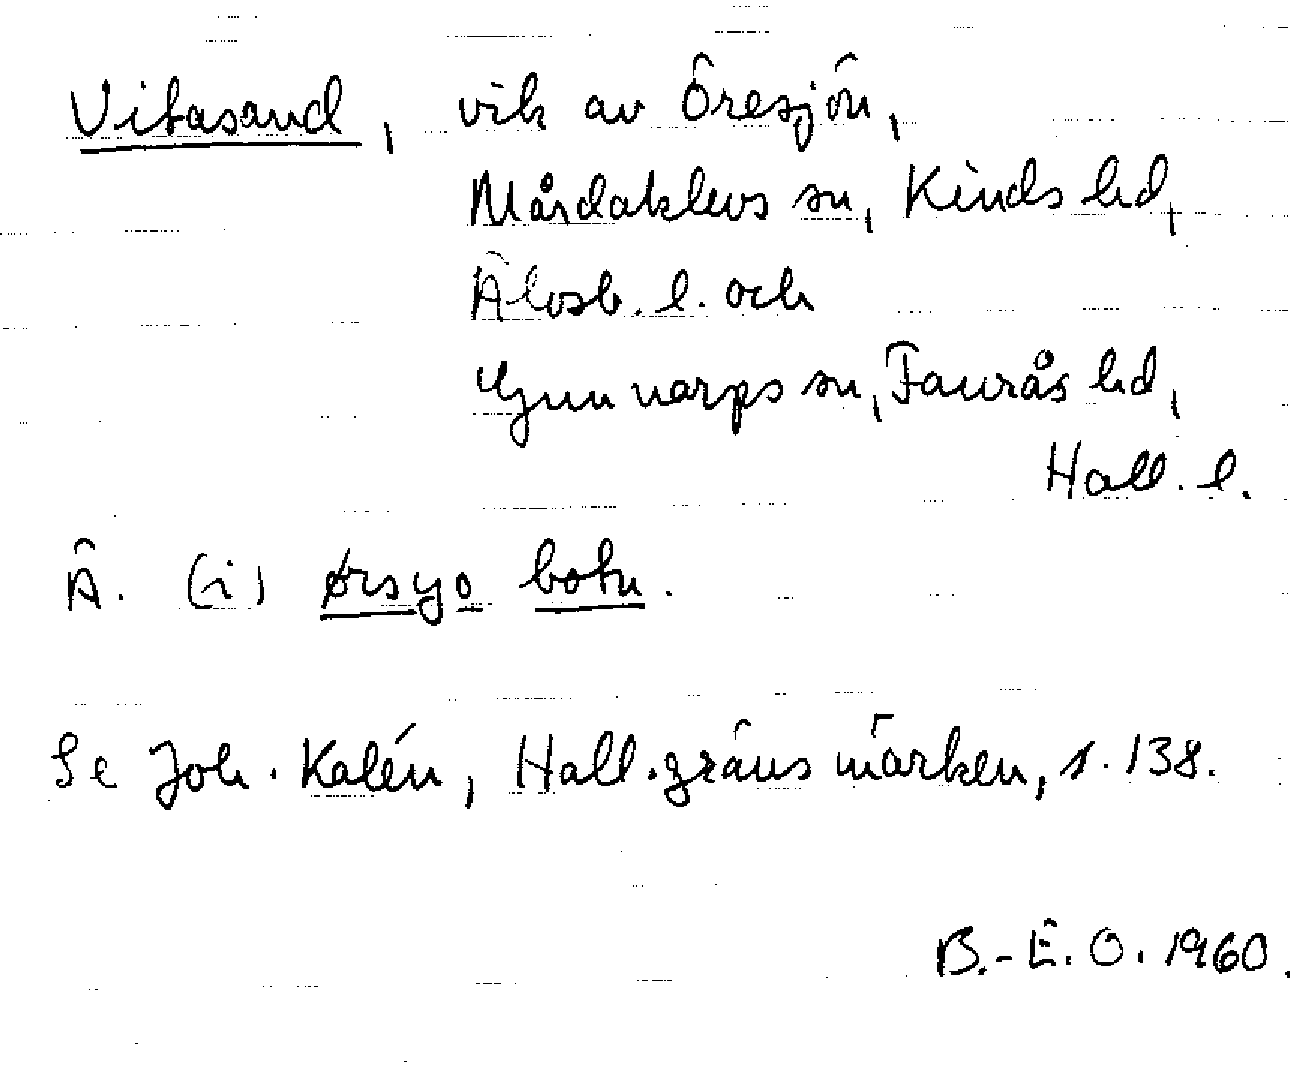 Vitasand, vik av Öresjön,
Mårdaklevs sn, Kinds hd,
Älvsb. l. och
Gunnarps sn, Faurås hd,
Hall. l.
Ä. (i) ørsyo botn.
Se Joh. Kalén, Hall. gränsmärken, s. 138.
B.-E. O. 1960.